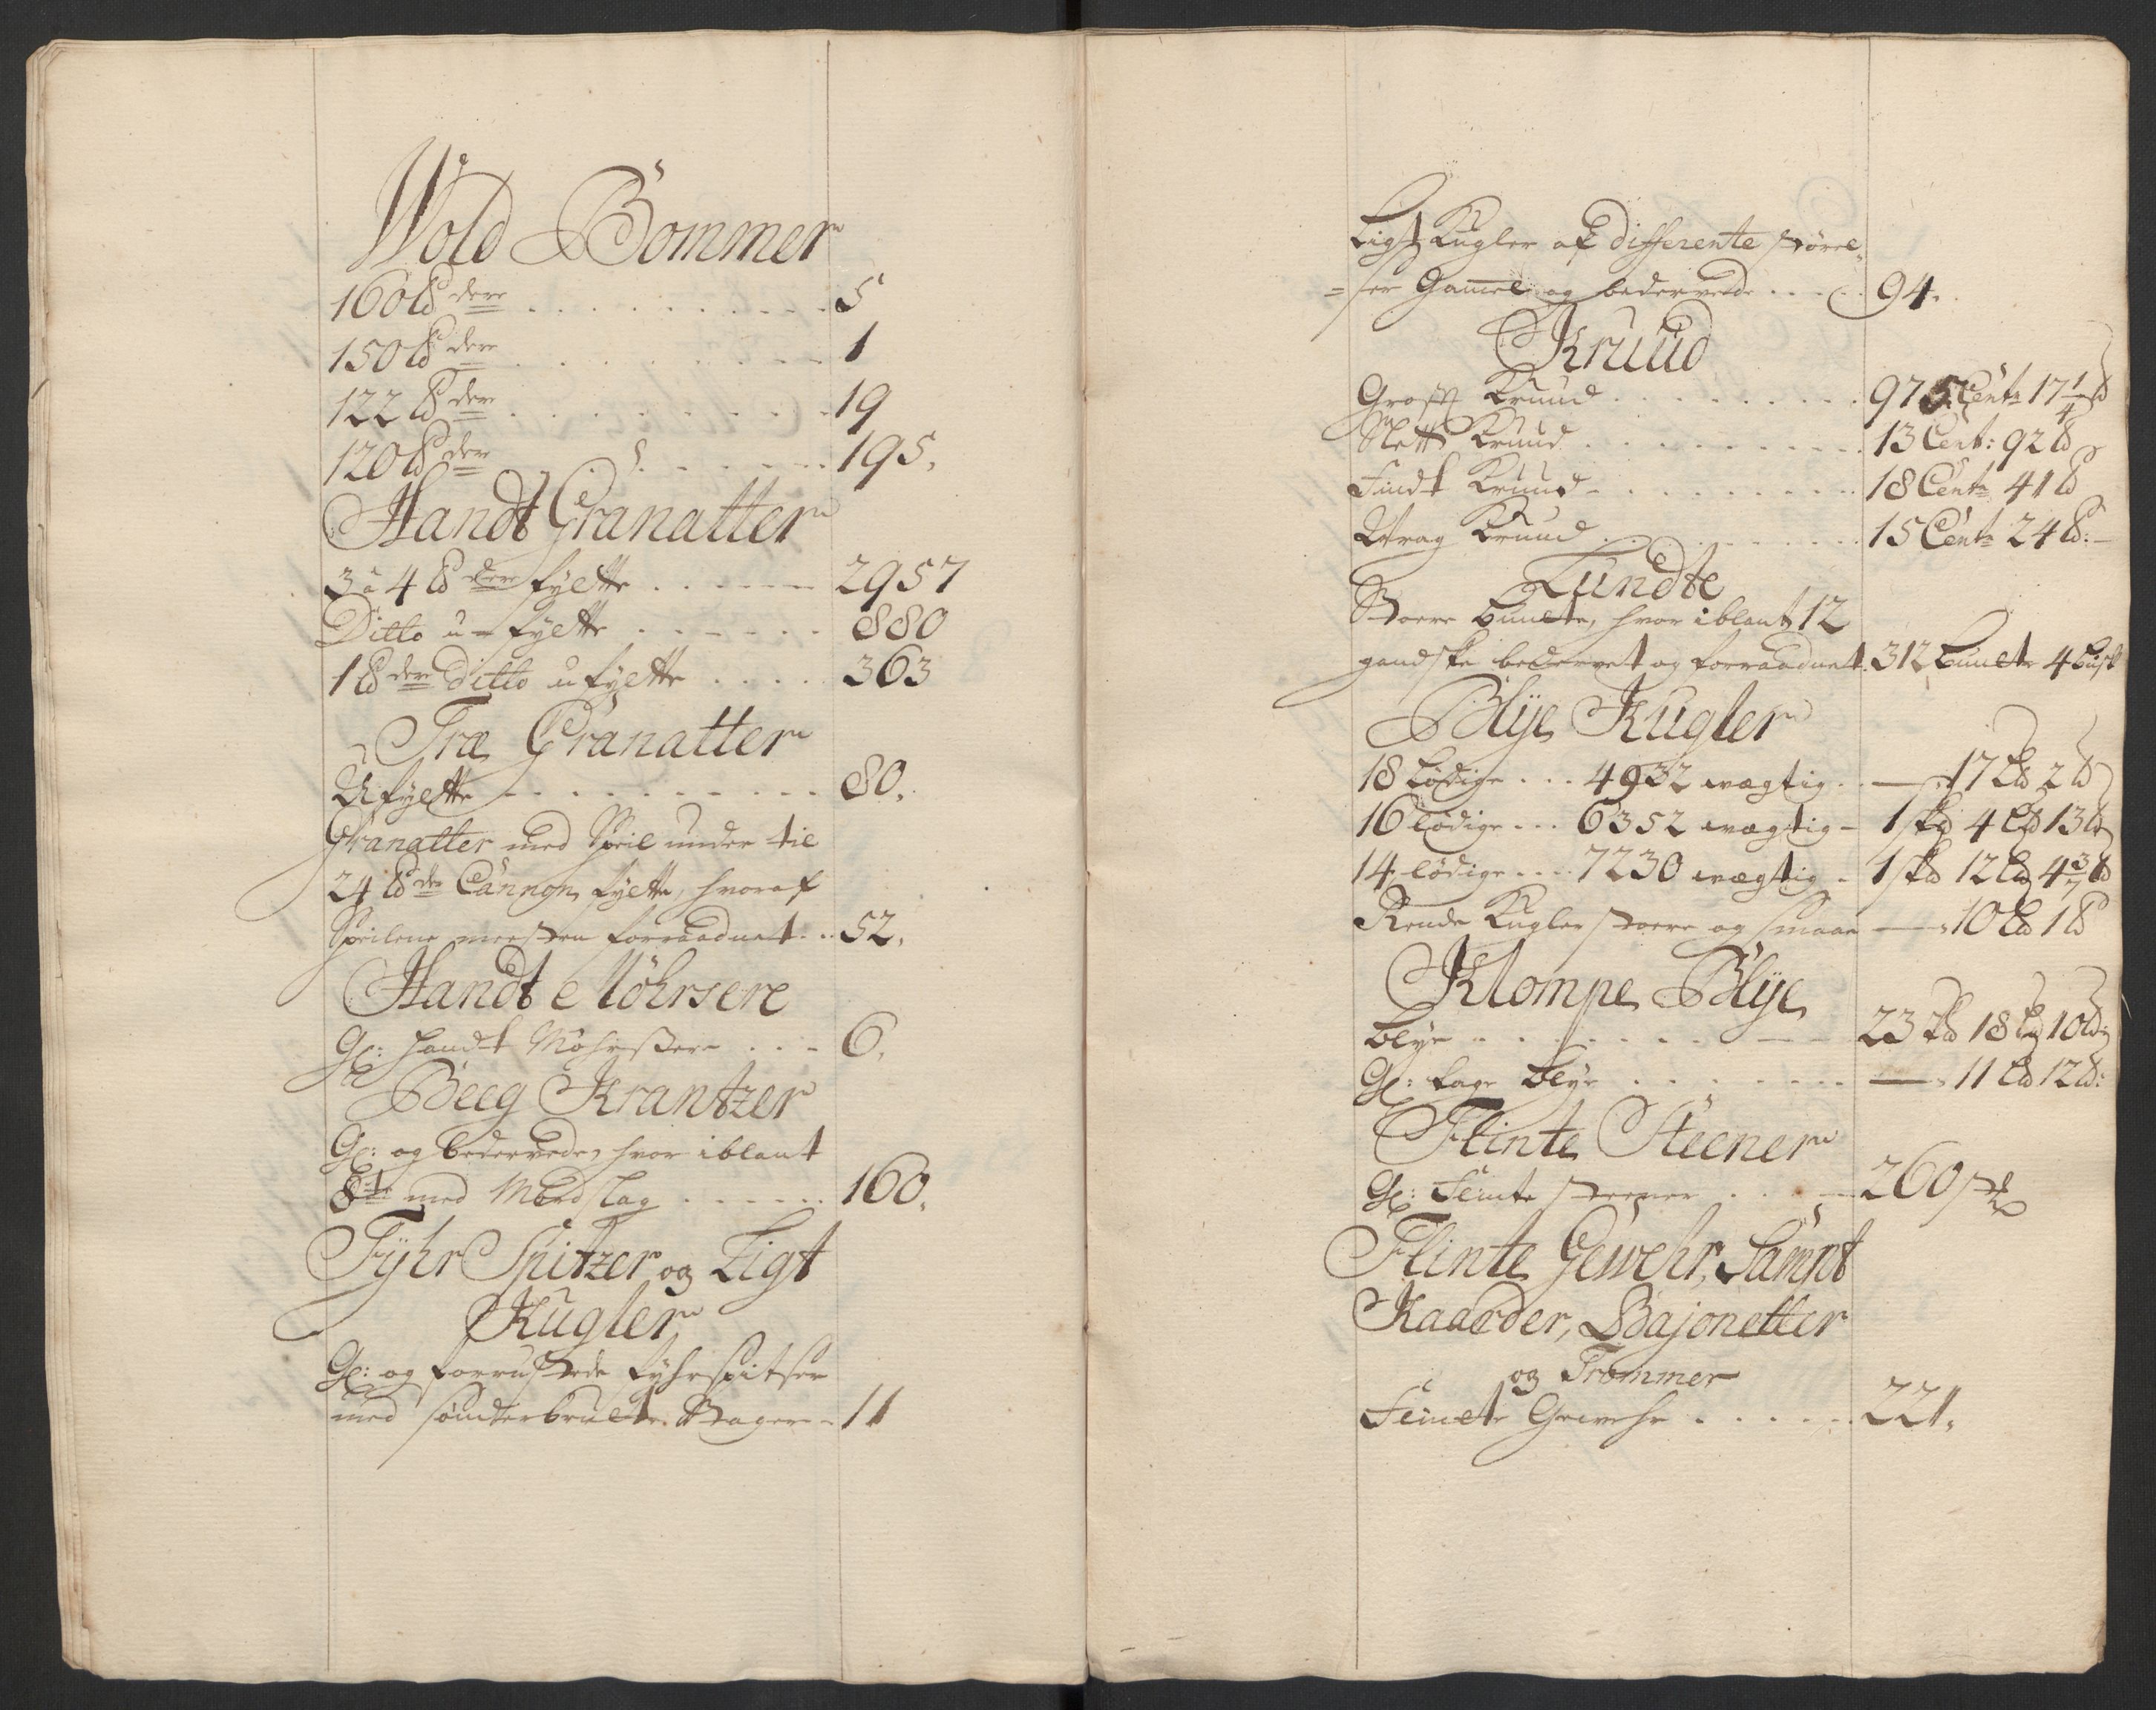 Wold Bommer
160 ℔dere . . . . . . . . . . 5
150 ℔dere . . . . . . . . . 1
122 ℔dere . . . . . . . . . 19
120 ℔dere . . . . . . . 195.
Handt Granatter
3 à 4 ℔dere fyelte . . . . . . 2957
Ditto u-fyelte . . . . . . 880
1 ℔dere Ditto ufyelte . . . . 363
Træ Granatter
Ufyelte . . . . . . . . . . 80.
Granatter med Speil under til
24 ℔der Cannon fyelte, hvoraf
Speilene meesten forraadnet . . 52.
Handt Möhrsere
Gl: Handt Möhrsere . . . 6.
Beeg Krantzer
Gl: og bedervede, hvor iblant
8te med Mordslag . . . . . . 160.
Fyhr Spitzer og Ligt
Kugler
Gl: og forrustede fyhrspitser
med sönderbrulte Stager - 11
Ligt Kugler af differente störel-
=ser Gamel og bedervede . . . . 94.
Kruud
Groft Kruud . . . . . . . . . 975 Centr 17 1/4 ℔
Slett Kruud . . . . . . . . . 13 Cent: 92 ℔
Findt Kruud . . . . . . . . . 18 Centr 41 ℔
Vrag Kruud . . . . . . . . . 15 Centr 24 ℔: -
Lundte
Stoere Bundte, hvor iblant 12
gandske bedervet og forraadnet. 312 Bundte 4 Busk
Blye Kugler
18 Lödige . . . 4932 vægtig . — 17 L℔ 2 ℔
16 lödige . . . 6352 vægtig - 1 sk℔ 4 L℔ 13 ℔
14 lödige . . . . 7230 vægtig - 1 sk℔ 12 L℔ 4 3/7 ℔
Rende Kugler stoere og smaae — 10 L℔ 1 ℔
Klompe Blye
Blye . . . . . . . . . 23 sk℔ 18 L℔ 10 ℔
Gl: tage Blye . . . . . . . — 11 L℔ 12 ℔:
Flinte Steener
Gl: Flinte steener . . . . 260 stk
Flinte Gewehr, Sampt
Kaarder, Bajonetter
og Trommer
Flinte Gewehr . . . . . . 221.